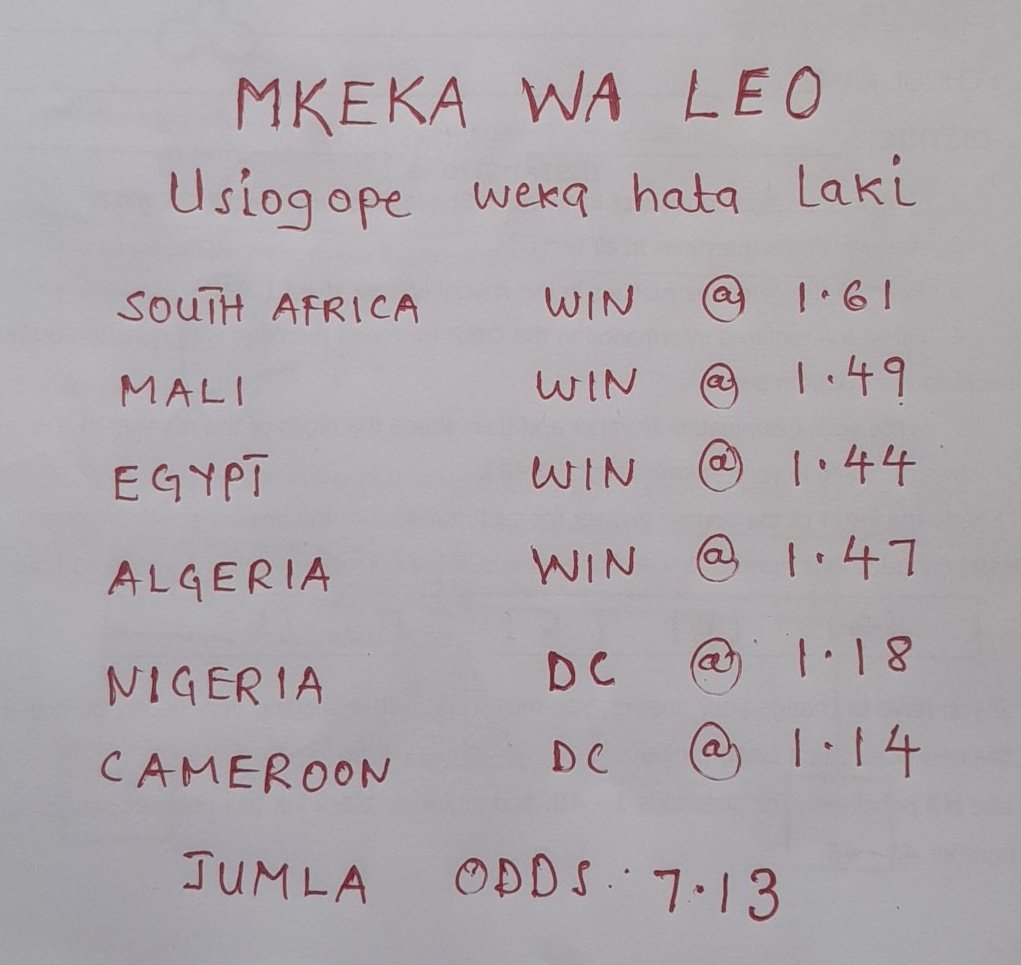 MKEKA WA LEO
Usiogope weka hata Laki
SOUTH AFRICA WIN @ 1.61
MALI WIN @ 1.49
EGYPT WIN @ 1.44
ALGERIA WIN @ 1.47
NIGERIA DC @ 1.18
CAMEROON DC @ 1.14
JUMLA ODDS: 7.13